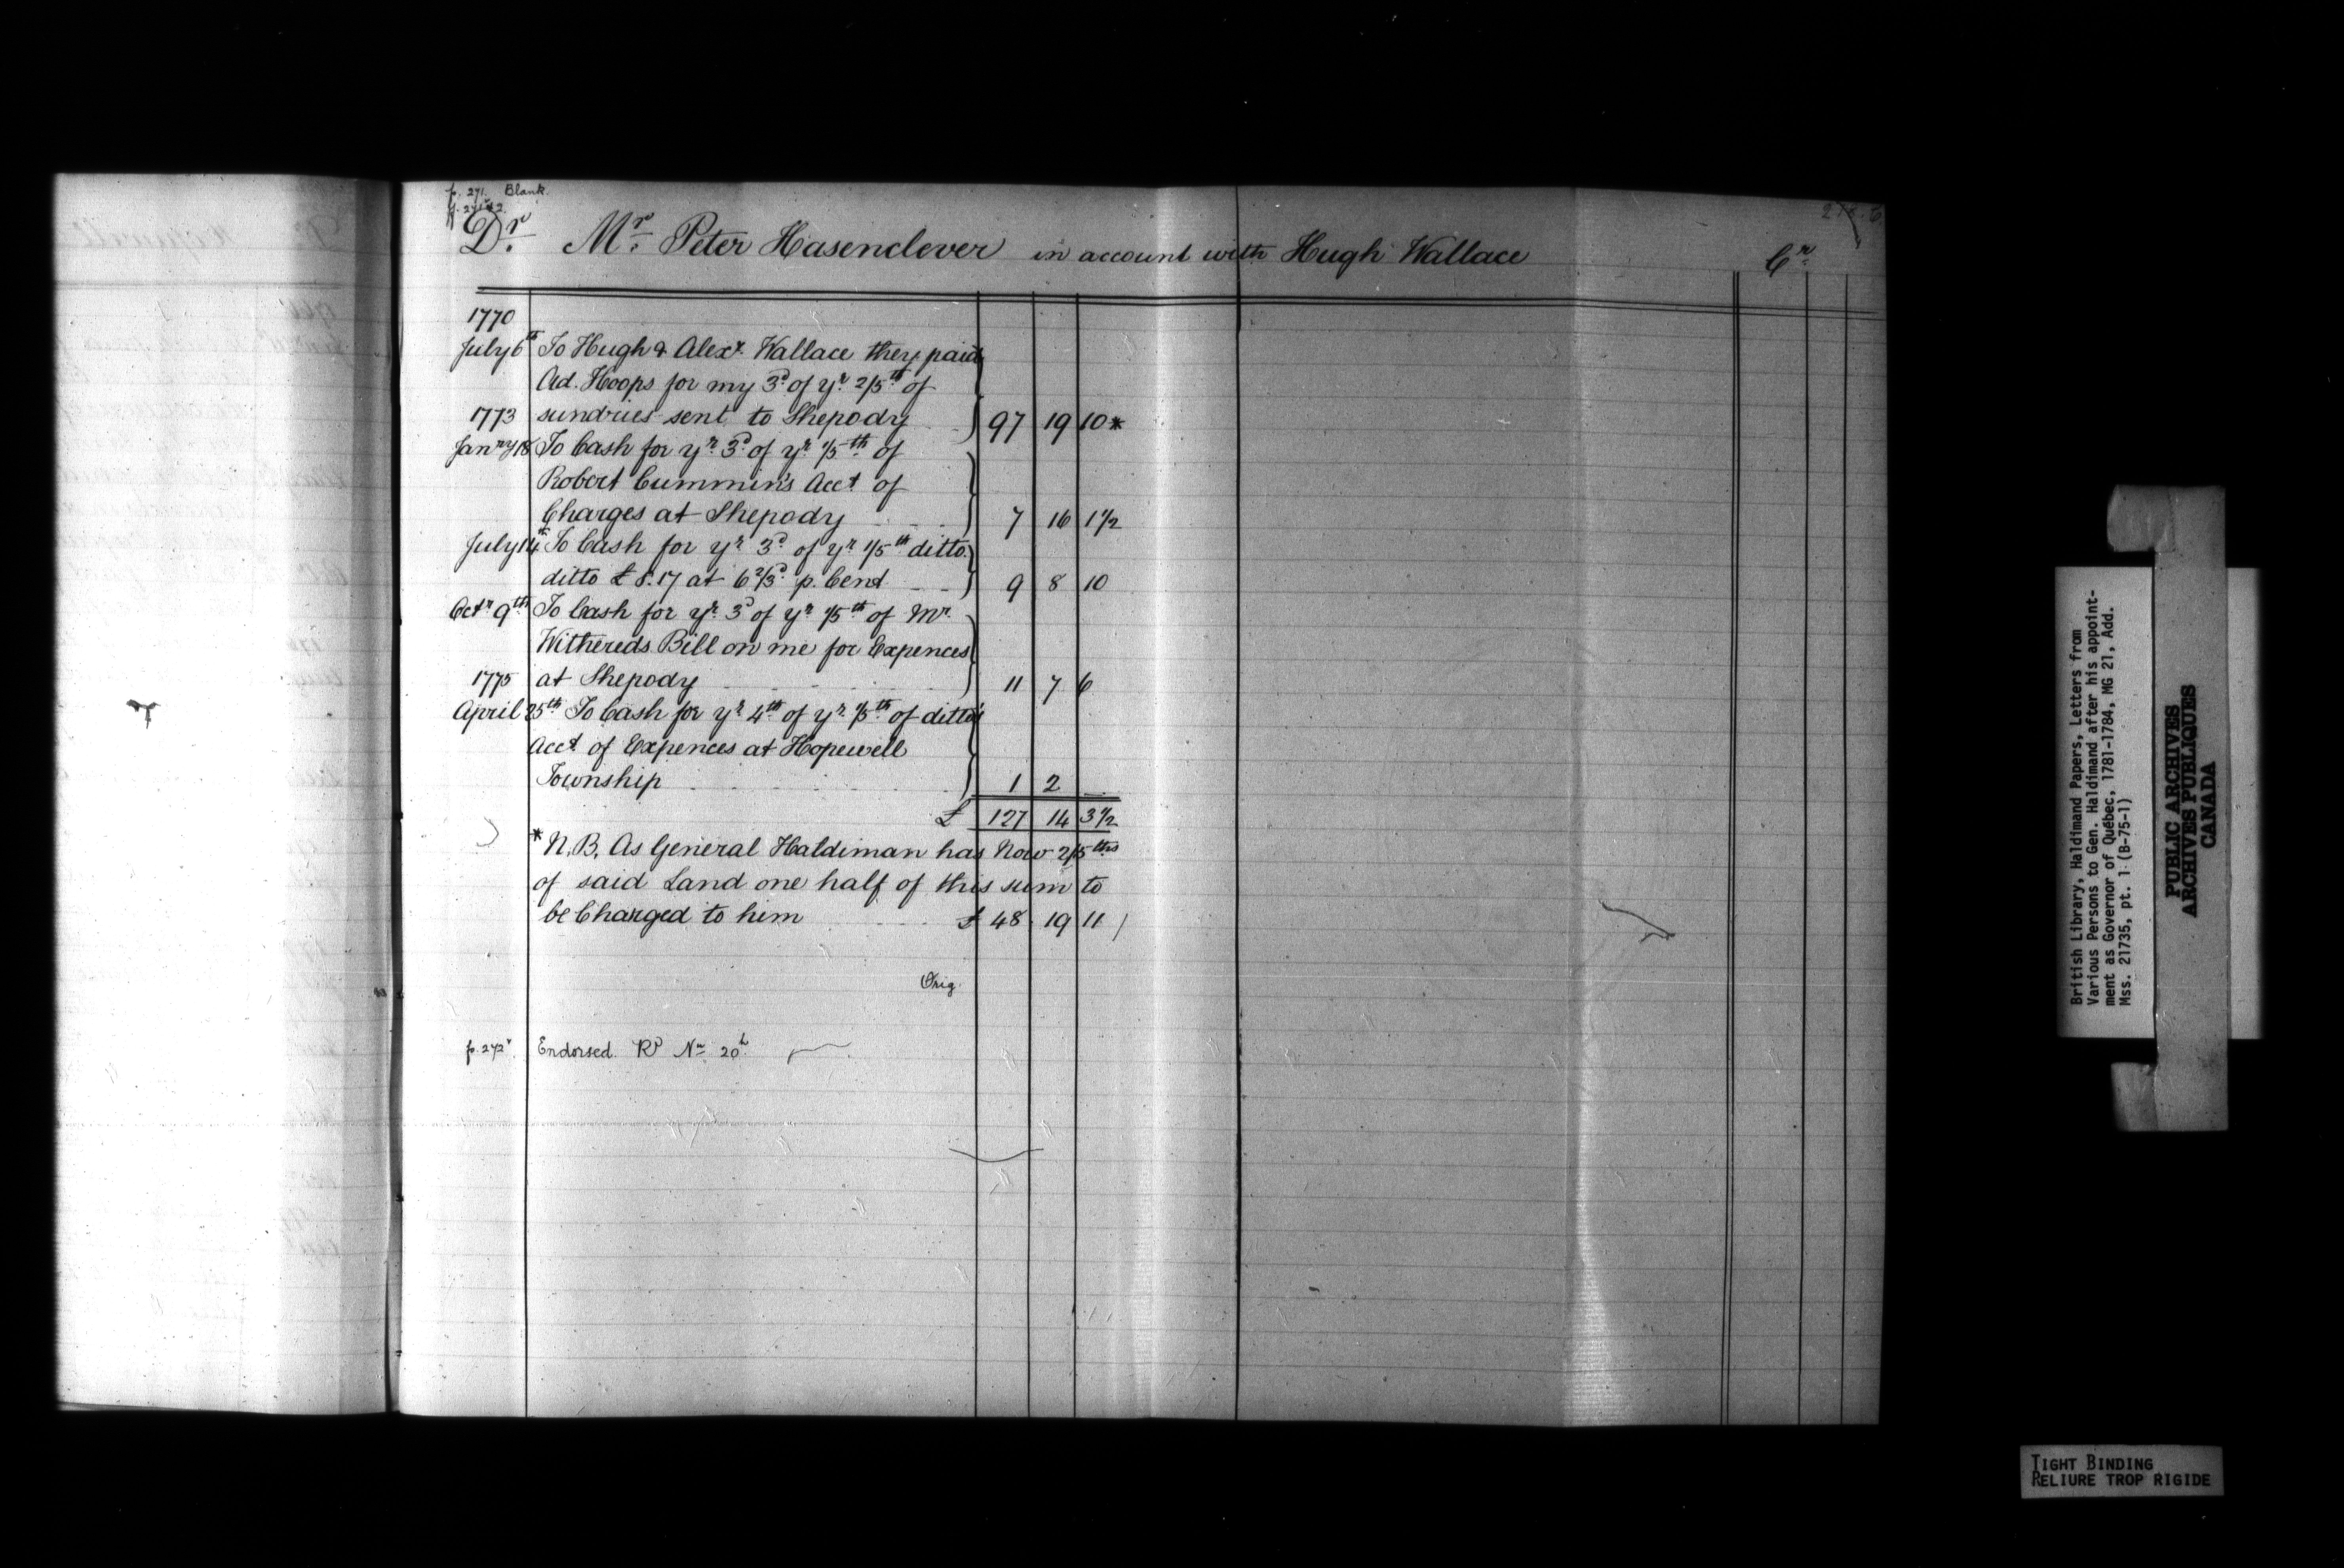 p. 271. Blank.
Dr. Mr. Peter Hasenclever in account with Hugh Wallace Cr.
1770
July 6th To Hugh & Alexr. Wallace they paid
Ad. Hoops for my 3d of yr 2/5th of
1773 sundries sent to Shepody 97 19 10*
Janry 18 To Cash for yr 3d of yr 1/5th of
Robert Cummin's Acct of
Charges at Shepody 7 16 1 1/2
July 14th To Cash for yr 3d of yr 1/5th ditto
ditto £8.17 at 6 2/3d p. Cent 9 8 10
Octr 9th To Cash for yr 3d of yr 1/5th of Mr.
Withereds Bill on me for Expences
1775 at Shepody 11 7 6
April 25th To Cash for yr 4th of yr 1/5th of ditto's
Acct of Expences at Hopewell
Township 1 2 —
£ 127 14 3 1/2
* N.B. As General Haldiman has Now 2/5ths
of said Land one half of this sum to
be Charged to him £ 48 19 11
Orig.
p. 272v. Endorsed.
British Library, Haldimand Papers, Letters from
Various Persons to Gen. Haldimand after his appoint-
ment as Governor of Québec, 1781-1784, MG 21, Add.
Mss. 21735, pt. 1 (B-75-1)
PUBLIC ARCHIVES
ARCHIVES PUBLIQUES
CANADA
TIGHT BINDING
RELIURE TROP RIGIDE